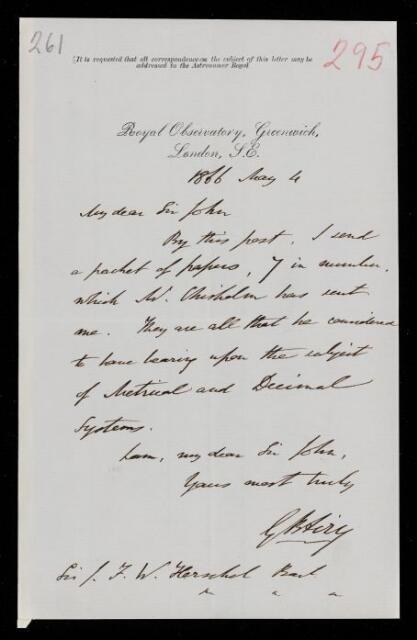 261
295
It is requested that all correspondence on the subject of this letter may be
addressed to the Astronomer Royal
Royal Observatory, Greenwich,
London, S.E.
1866 May 4
My dear Sir John
By this post, I send
a packet of papers, 7 in number,
which Mr. Chisholm has sent
me. They are all that he considered
to have bearing upon the subject
of Metrical and Decimal
Systems.
I am, my dear Sir John,
Yours most truly
G B Airy
Sir J. F. W. Herschel Bart